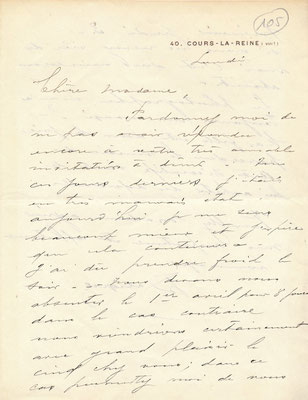 105
40. COURS-LA-REINE (VIIIe)
Lundi
Chère Madame,
Pardonnez moi de
ne pas avoir répondu
encore à votre très aimable
invitation à dîner.
ces jours derniers j'étais
en très mauvais état
aujourd'hui je me sens
beaucoup mieux et j'espère
que cela continuera.
J'ai dû prendre froid le
soir. nous devons nous
absenter le 1er avril pour 8 jours
dans le cas contraire
nous viendrions certainement
avec grand plaisir le
cinq chez vous; dans ce
cas permettez moi de vous